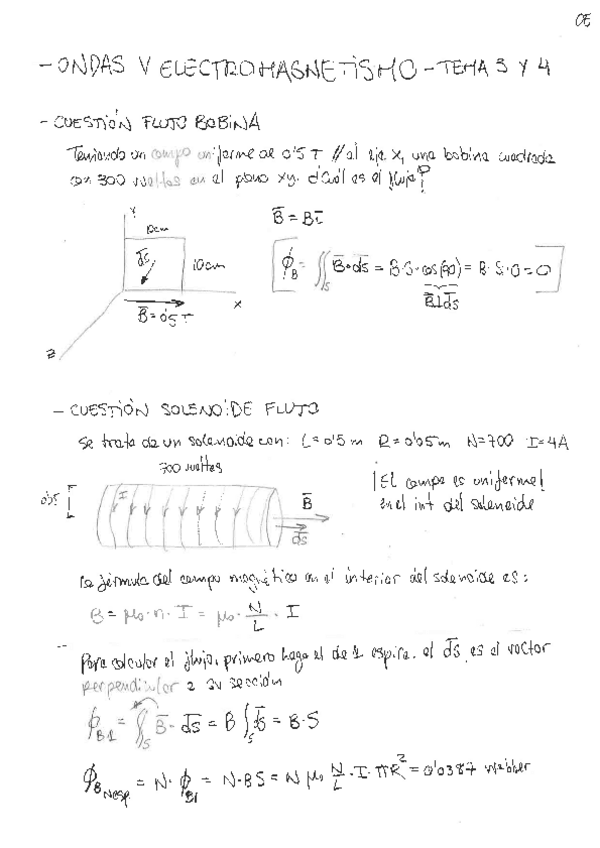 OE
- ONDAS Y ELECTROMAGNETISMO - TEMA 3 Y 4
- CUESTIÓN FLUJO BOBINA
Teniendo un campo uniforme de 0'5 T // al eje x, una bobina cuadrada
con 300 vueltas en el plano xy. ¿Cuál es el flujo?
Y
10cm
B̄ = Bī
d̄s
10cm
ϕ_B = ∬_S B̄·d̄s = B·S·cos(90) = B·S·0 = 0
B̄⊥d̄s
X
B̄=0'5 T
Z
- CUESTIÓN SOLENOIDE FLUJO
Se trata de un solenoide con: L=0'5 m R=0'05m N=700 I=4A
700 vueltas
¡El campo es uniforme!
en el int del solenoide
0'5
I
B̄
d̄s
la fórmula del campo magnético en el interior del solenoide es:
B = μ₀·n·I = μ₀·N/L·I
Para calcular el flujo, primero hago el de 1 espira. el d̄s es el vector
perpendicular a su sección
ϕ_B1 = ∬_S B̄·d̄s = B∫_S d̄s = B·S
ϕ_B N esp = N·ϕ_B1 = N·BS = N μ₀ N/L·I·πR² = 0'0387 webber